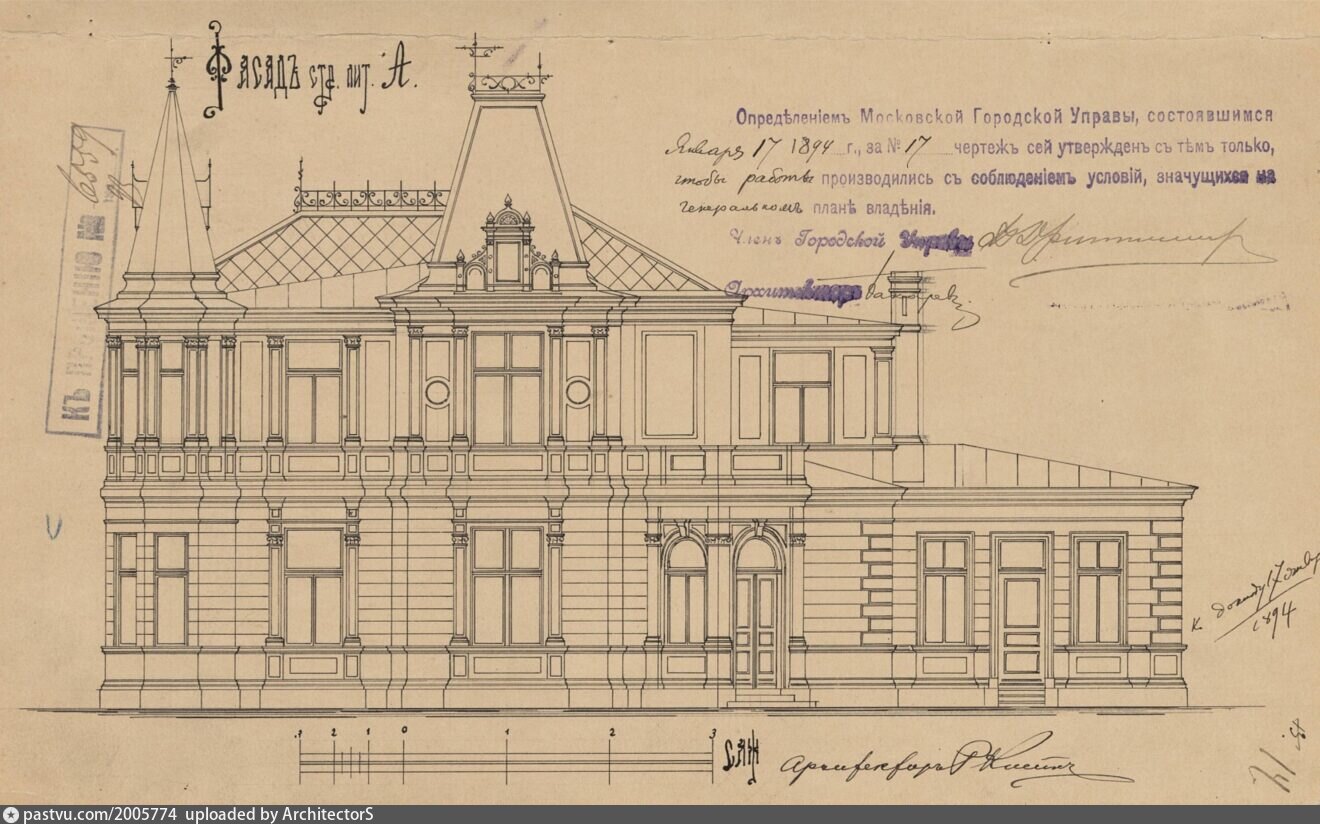 Фасадъ стр. лит. А.
КЪ ПРОШЕНІЮ № 6559
Опредѣленіемъ Московской Городской Управы, состоявшимся
Января 17 1894 г., за № 17 чертежъ сей утвержденъ съ тѣмъ только,
чтобы работы производились съ соблюденіемъ условій, значущихся на
генеральномъ планѣ владѣнія.
Членъ Городской Управы
Архитекторъ
к докладу 17 января
1894
.3 2 1 0 1 2 3 САЖ
Архитекторъ
pastvu.com/2005774 uploaded by ArchitectorS